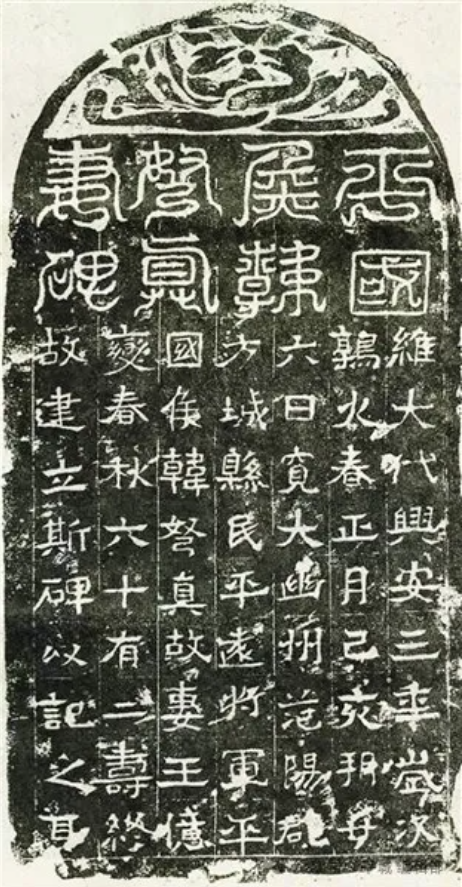 平國
侯韓
弩真
妻碑
維大代興安三年歲次
鶉火春正月己亥朔廿
六日大幽州范陽郡
方城縣民平遠將軍平
國侯韓弩真故妻王億
變春秋六十有二壽終
故建立斯碑以記之耳